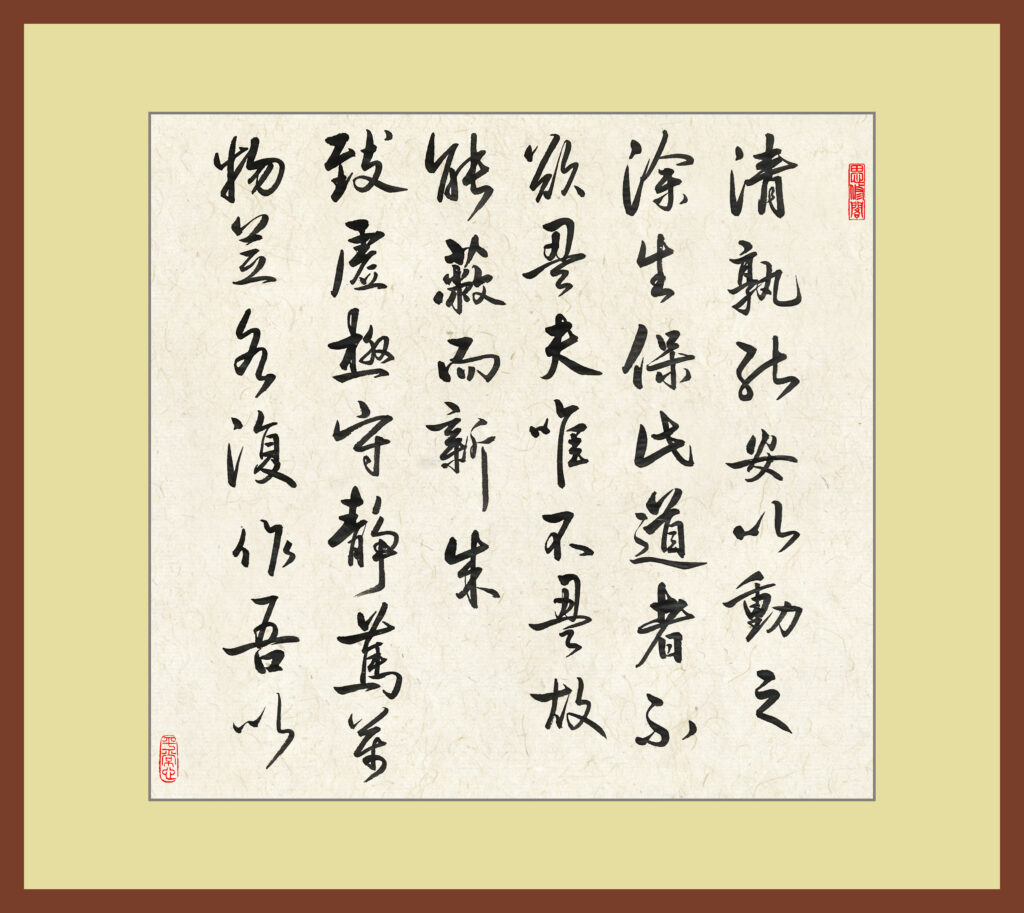 思修閣
清孰能安以動之
徐生保此道者不
欲盈夫唯不盈故
能蔽而新成
致虛極守靜篤萬
物並各復作吾以
平常心